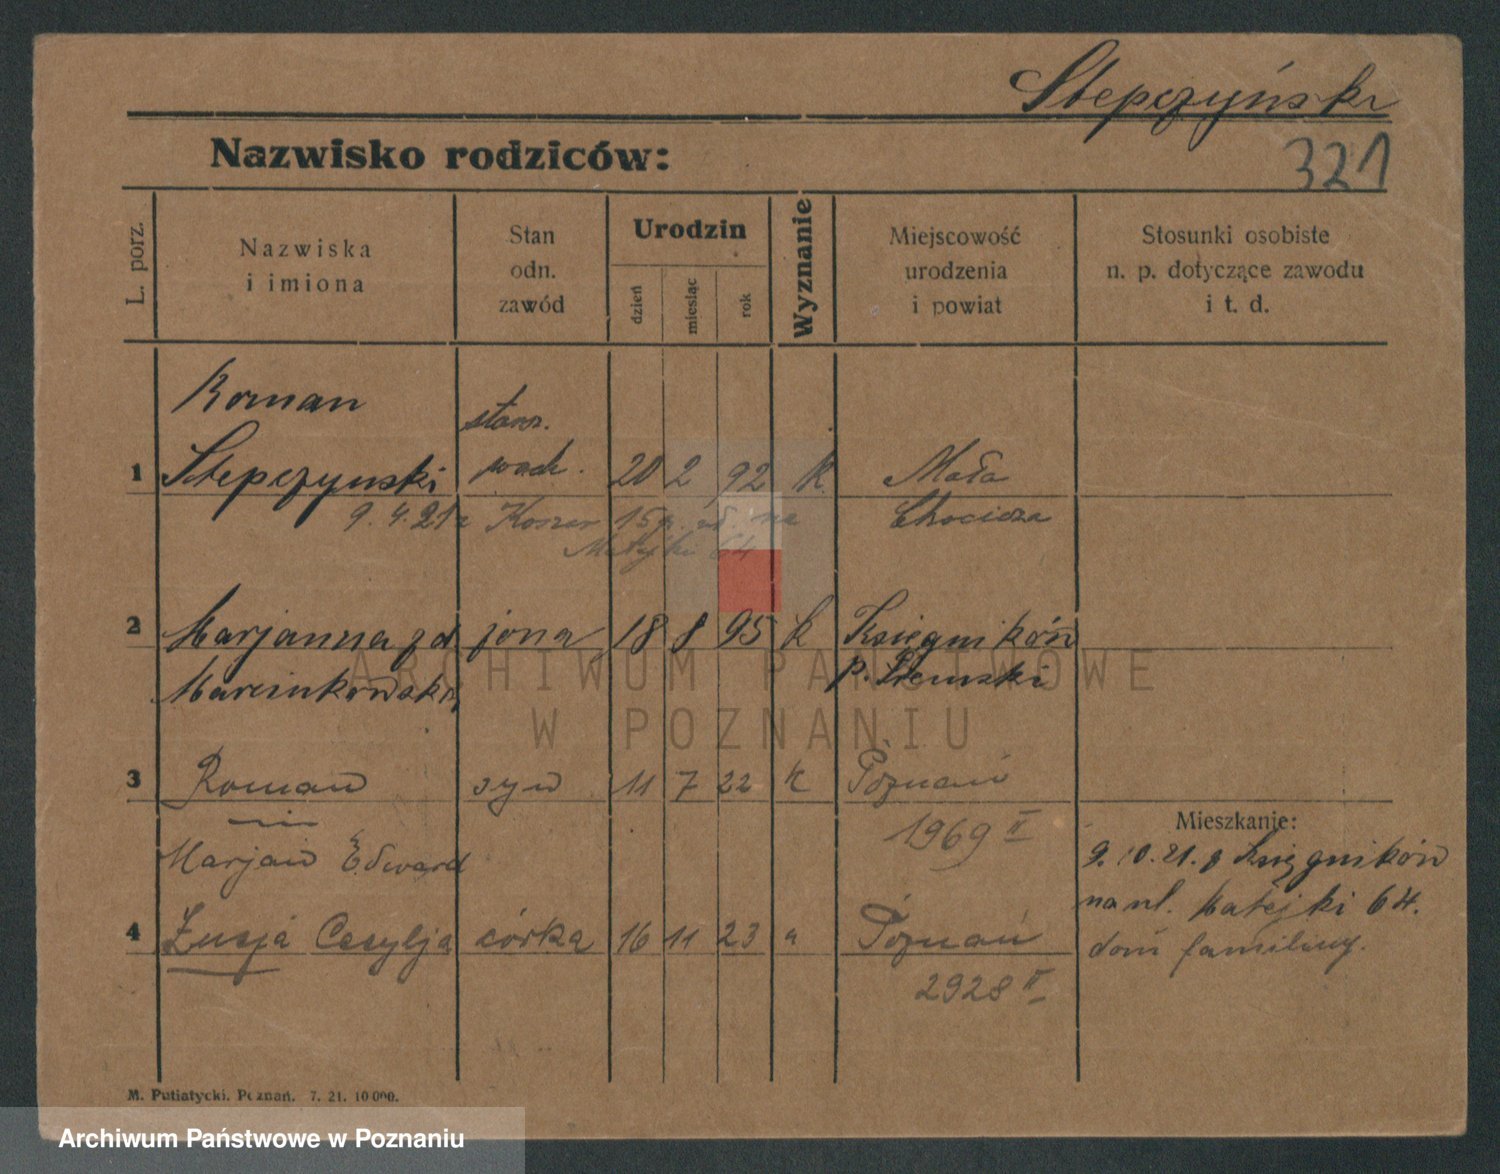 Stepczyński
321
Nazwisko rodziców:
L. porz.
Nazwiska
i imiona
Stan
odn.
zawód
Urodzin
dzień
miesiąc
rok
Wyznanie
Miejscowość
urodzenia
i powiat
Stosunki osobiste
n. p. dotyczące zawodu
i t. d.
Roman
1 Stepczynski starsz. wach. 20 2 92 k Mała
9.4.21 z Koszar 15 p. uł. na Chocicza
Matejki 64
2 Marjanna zd żona 18 8 95 k Księgnikón
Marcinkowska p. Sremski
3 Roman syn 11 7 22 k Poznań
1969 II
Marjan Edward
4 Łucja Cecylja córka 16 11 23 " Poznań
2928 II
Mieszkanie:
9.10.21. z Księgnikón
na ul. Matejki 64.
dom familiny.
M. Putiatycki. Poznań. 7. 21. 10000.
ARCHIWUM PAŃSTWOWE
W POZNANIU
Archiwum Państwowe w Poznaniu